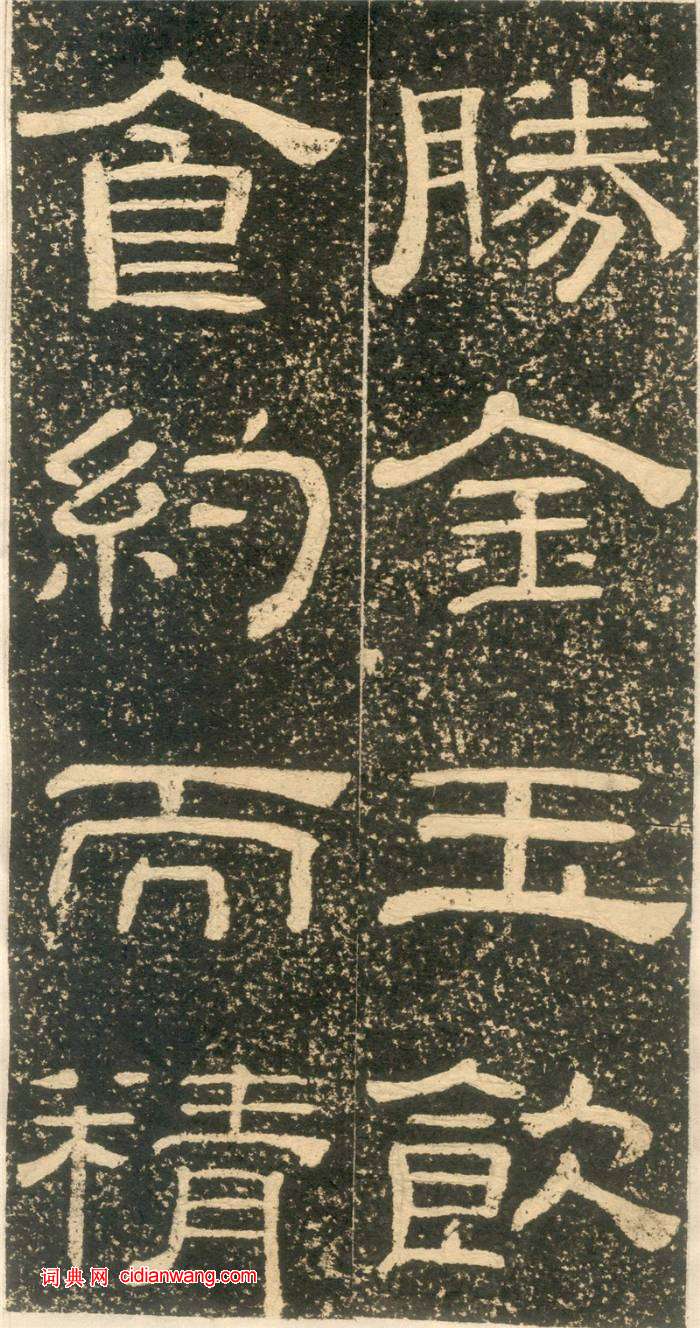 勝金玉飲
食約而精
词典网 cidianwang.com